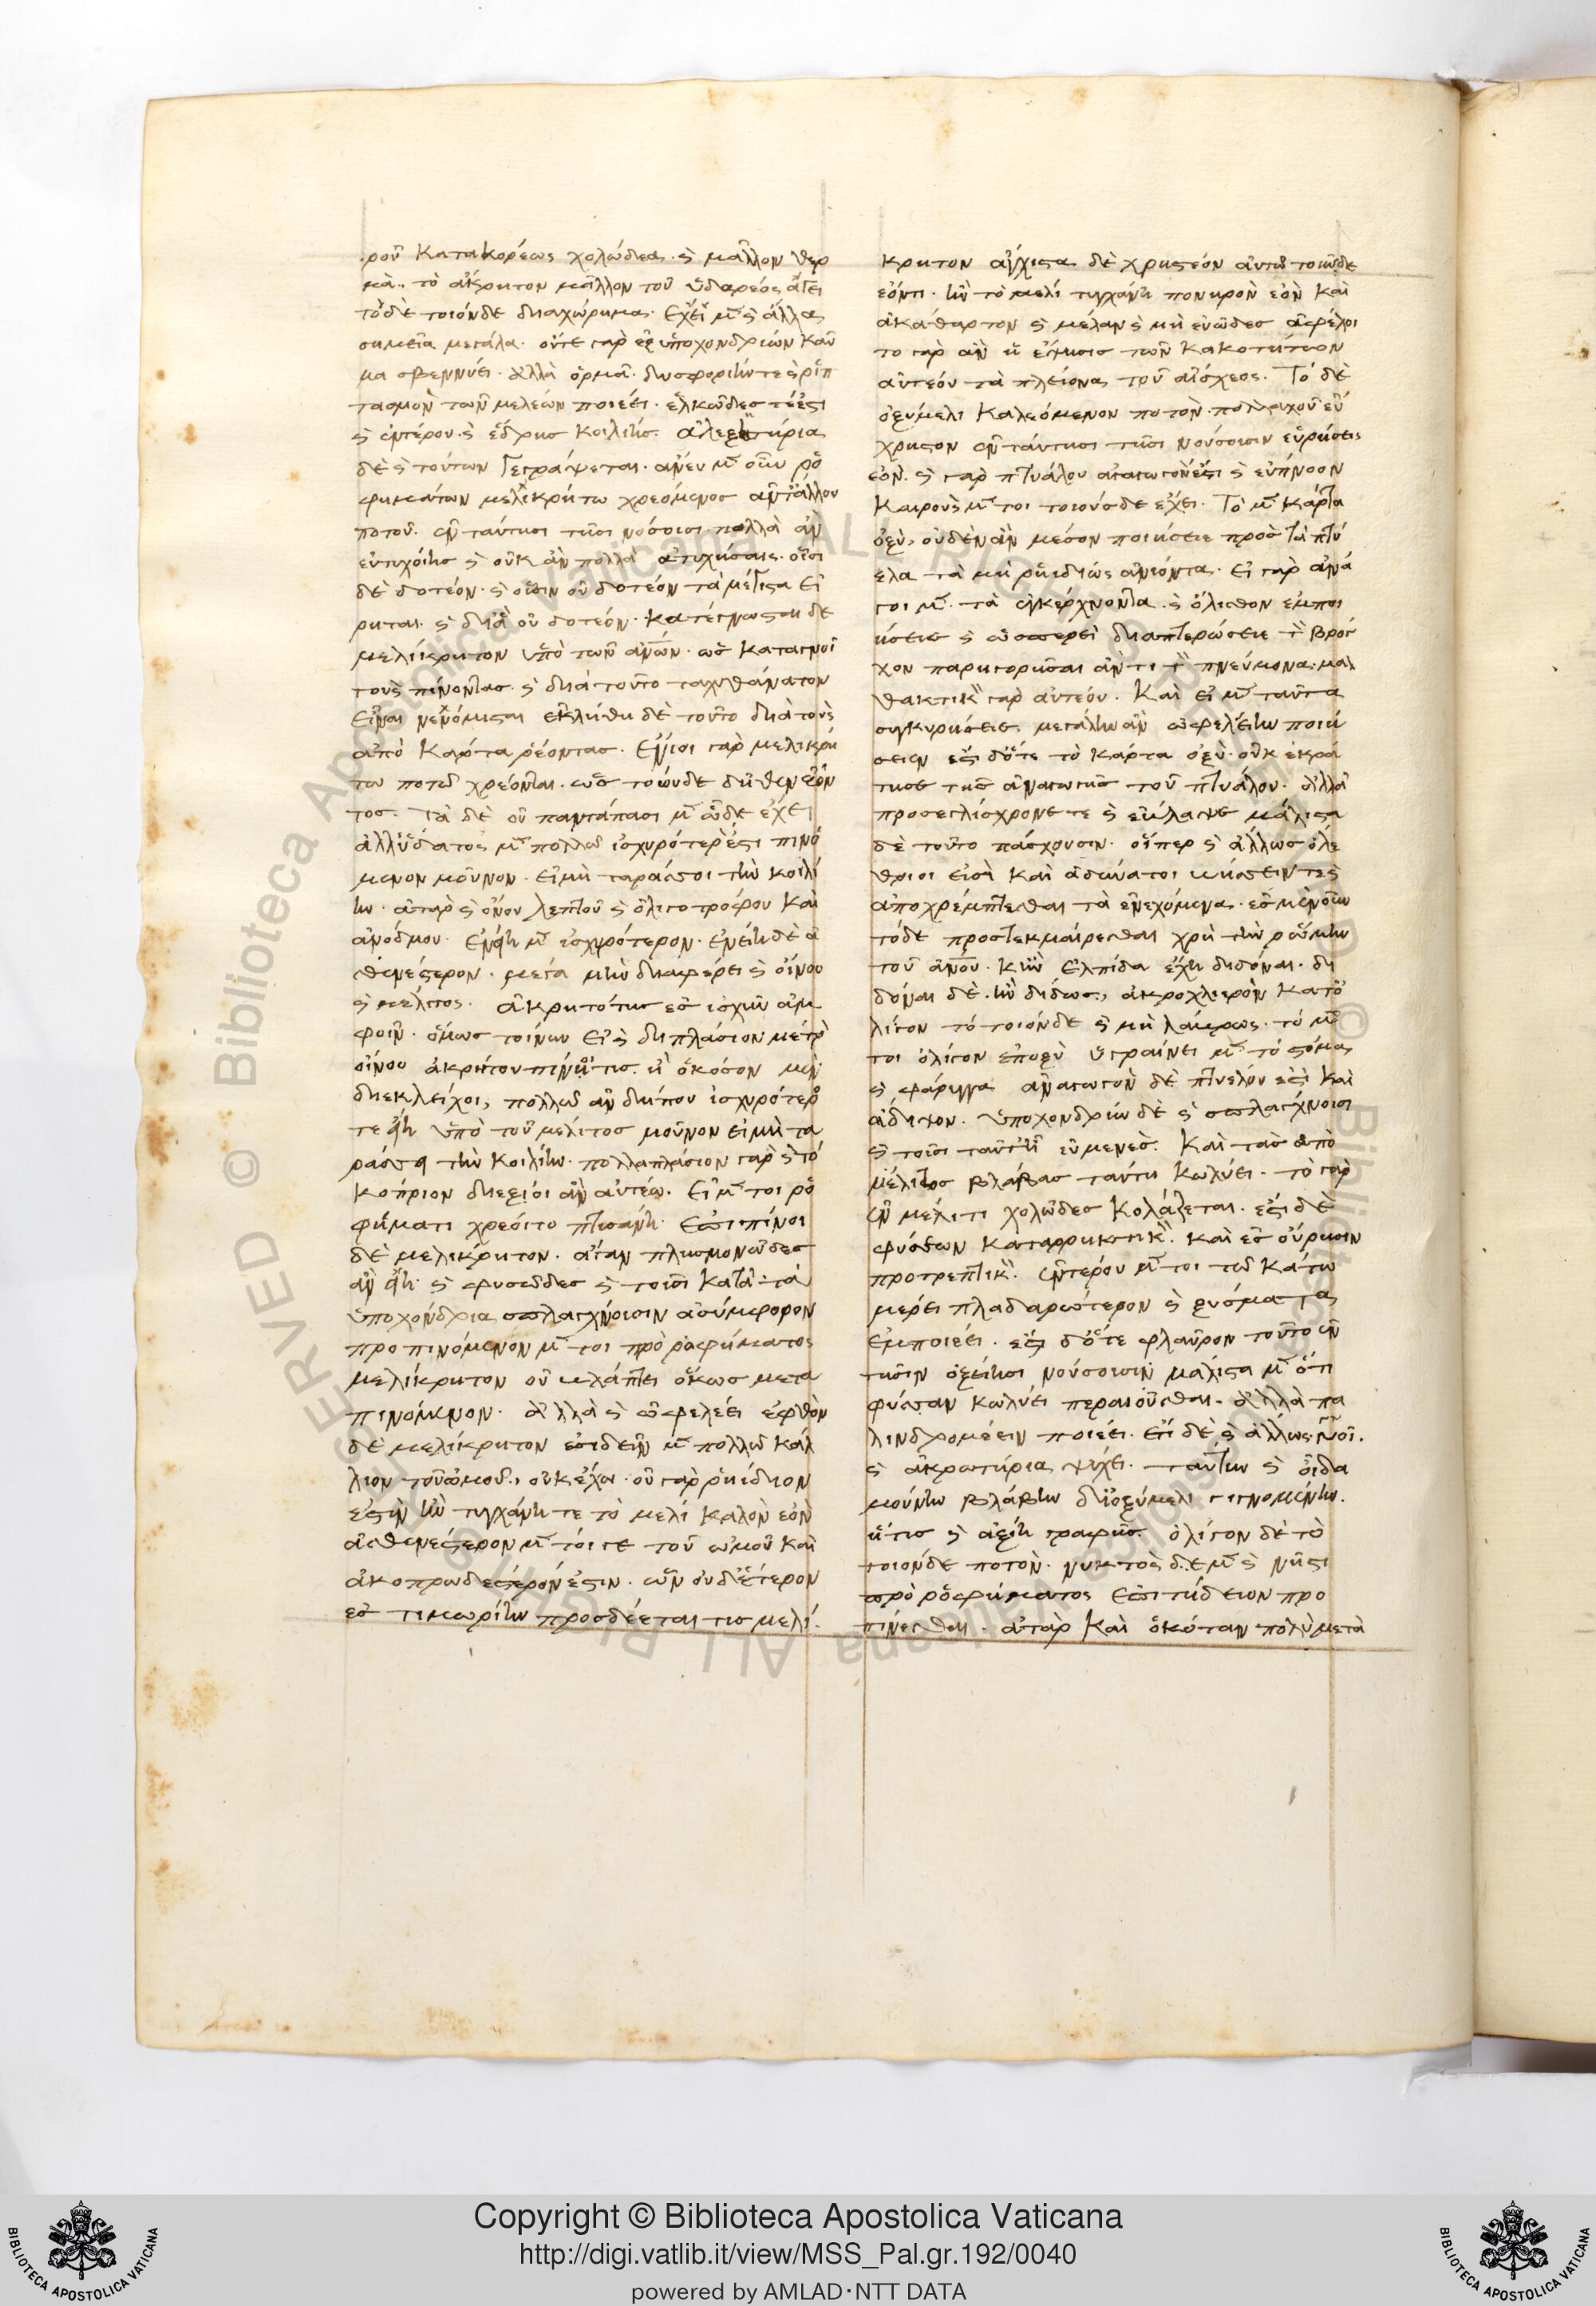 ροῦ κατακορέως χολώδεα· καὶ μᾶλλον θερ
μὰ· τὸ ἄκρητον μᾶλλον τοῦ ὑδαρέος ἄγει
τὸ δὲ τοιόνδε διαχώρημα· ἔχει μὲν καὶ ἄλλα
σημεῖα μεγάλα· οὔτε γὰρ ἐξ ὑποχονδρίων καῦ
μα σβεννύει· ἀλλὰ ὁρμᾶ· δυσφορίην τε καὶ ῥιπ
τασμὸν τῶν μελέων ποιέει· ἑλκῶδές τέ ἐστι
καὶ ἐντέρου καὶ ἕδρης κοιλίης· ἀλεξητήρια
δὲ καὶ τούτων γεγράψεται· ἄνευ μὲν οὖν ῥο
φημάτων μελικρήτω χρεόμενος ἀντ' ἄλλου
ποτοῦ· ἐν ταύτησι τῆσι νόσοισι πολλὰ ἂν
εὐτυχοίης καὶ οὐκ ἂν πολλὰ ἀτυχήσαις· οἷσι
δὲ δοτέον· καὶ οἷσιν οὐ δοτέον τὰ μέγιστα εἴ
ρηται· καὶ δι' ἃ οὐ δοτέον· κατέγνωσται δὲ
μελίκρητον ὑπὸ τῶν ἀνων· ὡς καταγυοῖ
τοὺς πίνοντας· καὶ διὰ τοῦτο ταχυθάνατον
εἶναι νενόμισται ἐκλήθη δὲ τοῦτο διὰ τοὺς
ἀπὸ κάρτα ῥέοντας· ἔνιοι γὰρ μελικρή
τω ποτῷ χρέονται· ὡς τοιοῦδε δῆθεν ἐόν
τος· τὰ δὲ οὐ παντάπασι μὲν ὧδε ἔχει
ἀλλ' ὕδατος μὲν πολλῷ ἰσχυρότερόν ἐστι πινό
μενον μοῦνον· εἰ μὴ ταράσσοι τὴν κοιλί
ην· ἀτὰρ καὶ οἴνου λεπτοῦ καὶ ὀλιγοτρόφου καὶ
ἀνόδμου· ἔνθη μὲν ἰσχυρότερον· ἔνείη δὲ ἀ
σθενέστερον· μέγα μὴν διαφέρει καὶ οἴνου
καὶ μέλιτος· ἀκρητότης ἐς ἰσχὺν ἀμ
φοῖν· ὅμως τοίνυν εἰ καὶ διπλάσιον μέτρον
οἴνου ἀκρήτου πίνοι τις· ἢ ὁκόσον μὲν
διεκλείχοι, πολλῷ ἂν δήπου ἰσχυρότερος
τε εἴη ὑπὸ τοῦ μέλιτος μοῦνον εἰ μὴ τα
ράσσοι τὴν κοιλίην· πολλαπλάσιον γὰρ καὶ τὸ
κόπριον διεξίοι ἂν αὐτέω· εἰ μέν τοι ῥο
φήματι χρέοιτο πτισάνη· ἐπιπίνοι
δὲ μελίκρητον· ἄγαν πλησμονῶδες
ἂν εἴη· καὶ φυσῶδες καὶ τοῖσι κατὰ τὰ
ὑποχόνδρια σπλάγχνοισιν ἀσύμφορον
προπινόμενον μέν τοι πρὸ ῥοφήματος
μελίκρητον οὐ βλάπτει ὅκως μετα
πινόμενον· ἀλλὰ καὶ ὠφελέει ἑφθὸν
δὲ μελίκρητον ἐσιδεῖν μὲν πολλῷ κάλ
λιον τοῦ ὠμοῦ·, οὐκ ἔχω· οὐ γὰρ ῥηΐδιον
ἐστὶν ἢν τυγχάνη τε τὸ μέλι καλὸν ἐὸν
ἀσθενέστερον μέν τοί γε τοῦ ὠμοῦ καὶ
ἀκοπρωδέστερόν ἐστιν· ὧν οὐδετέρου
ἐς τιμωρίην προσδέεται τις μελί·
κρητον ἄγχιστα δὲ χρηστέον αὐτῷ τοιῷδε
ἐόντι· ἢν τὸ μέλι τυγχάνη πονηρὸν ἐὸν καὶ
ἀκάθαρτον καὶ μέλαν καὶ μὴ εὐῶδες ἀφέλοι
το γὰρ ἂν ἡ ἕψησις τῶν κακοτήτων
αὐτέου τὰ πλείονα τοῦ αἴσχεος. Τὸ δὲ
ὀξύμελι καλεόμενον ποτὸν· πολλαχοῦ εὔ
χρηστον ἐν ταύτησι τῆσι νούσοισιν εὑρήσεις
ἐὸν· καὶ γὰρ πτυάλου ἀναγωγόν ἐστι καὶ εὔπνοον
καιροὺς μέν τοι τοιούσδε ἔχει· Τὸ μὲν κάρτα
ὀξὺ, οὐδὲν ἂν μέσον ποιήσειε πρὸς τὰ πτύ
ελα τὰ μὴ ῥηϊδίως ἀνιόντα· εἰ γὰρ ἀνά
γοι μὲν τὰ ἐγκέρχνοντα· καὶ ὄλισθον ἐμποι
ήσειε καὶ ὥσπερεὶ διαπτερώσειε τὸν βρόγ
χον παρηγορῆσαι ἄν τι τὸν πνεύμονα· μαλ
θακτικὸν γὰρ αὐτέου. Καὶ εἰ μὲν ταῦτα
συγκυρήσειε μεγάλην ἂν ὠφελείην ποιή
σειεν ἔστι δ' ὅτε τὸ κάρτα ὀξὺ· οὐκ ἐκρά
τησε τῆς ἀναγωγῆς τοῦ πτυάλου· ἀλλὰ
προσεγλίσχρηνέ τε καὶ ἔβλαψε μάλιστα
δὲ τοῦτο πάσχουσιν· οἵπερ καὶ ἄλλως ὀλέ
θριοι εἰσὶ καὶ ἀδύνατοι βήσσειν τε καὶ
ἀποχρέμπτεσθαι τὰ ἐνεχόμενα· ἐς μὲν οὖν
τόδε προστεκμαίρεσθαι χρὴ τὴν ῥώμην
τοῦ ἀνου· κἢν ἐλπίδα ἔχη διδόναι· δι
δόναι δὲ· ἢν διδῷς, ἀκροχλίερον κατ' ὀ
λίγον τὸ τοιόνδε καὶ μὴ λαύρως· τὸ μέν
τοι ὀλίγον ὕποξυ ὑγραίνει μὲν τὸ στόμα
καὶ φάρυγγα ἀναγωγὸν δὲ πτυέλου ἐστὶ καὶ
ἄδιψον· ὑποχονδρίω δὲ καὶ σπλάγχνοισι
καὶ τοῖσι ταύτη εὐμενὲς. Καὶ τὰς ἀπὸ
μέλιτος βλάβας ταύτη κωλύει· τὸ γὰρ
ἐν μέλιτι χολῶδες κολάζεται· ἔστι δὲ
φυσέων καταρρηκτικὸν καὶ ἐς οὔρησιν
προτρεπτικὸν· ἐντέρου μέν τοι τῷ κάτω
μέρει πλαδαρώτερον καὶ ξύσματα
ἐμποιέει· ἔστι δ' ὅτε φλαῦρον τοῦτο ἐν
τῆσιν ὀξείησι νούσοισιν μάλιστα μὲν ὅτι
φύσαν κωλύει περαιοῦσθαι. ἀλλὰ πα
λινδρομέειν ποιέει· ἔτι δὲ καὶ ἄλλως γυιοῖ·
καὶ ἀκρωτήρια ψύχει· ταύτην καὶ οἶδα
μούνην βλάβην δι' ὀξύμελι γιγνομένην·
ἥτις καὶ ἀξίη γραφῆς· ὀλίγον δὲ τὸ
τοιόνδε ποτὸν· νυκτὸς δὲ μὲν καὶ νῆστι
πρὸ ῥοφήματος ἐπιτήδειον προ
πίνεσθαι· ἀτὰρ καὶ ὁκόταν πολὺ μετὰ